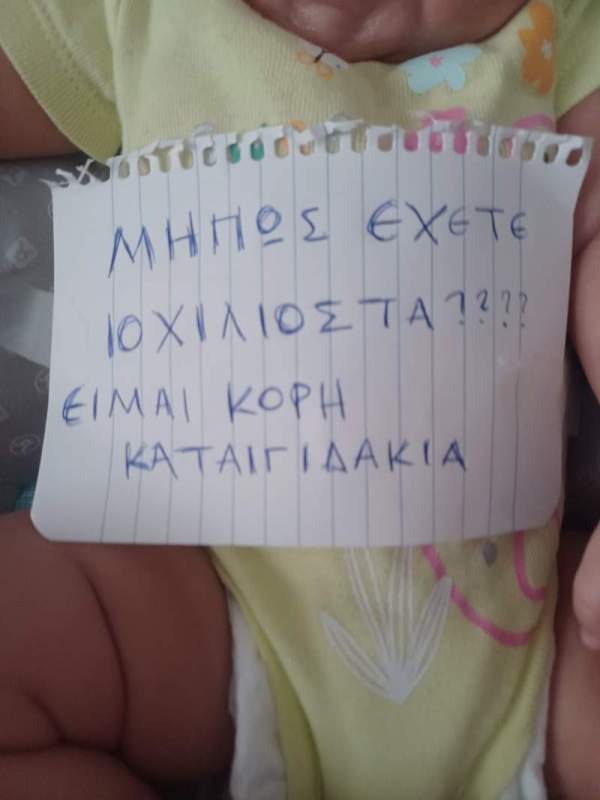 ΜΗΠΩΣ ΕΧΕΤΕ
ΙΟΧΙΛΙΟΣΤΑ????
ΕΙΜΑΙ ΚΟΡΗ
ΚΑΤΑΙΓΙΔΑΚΙΑ